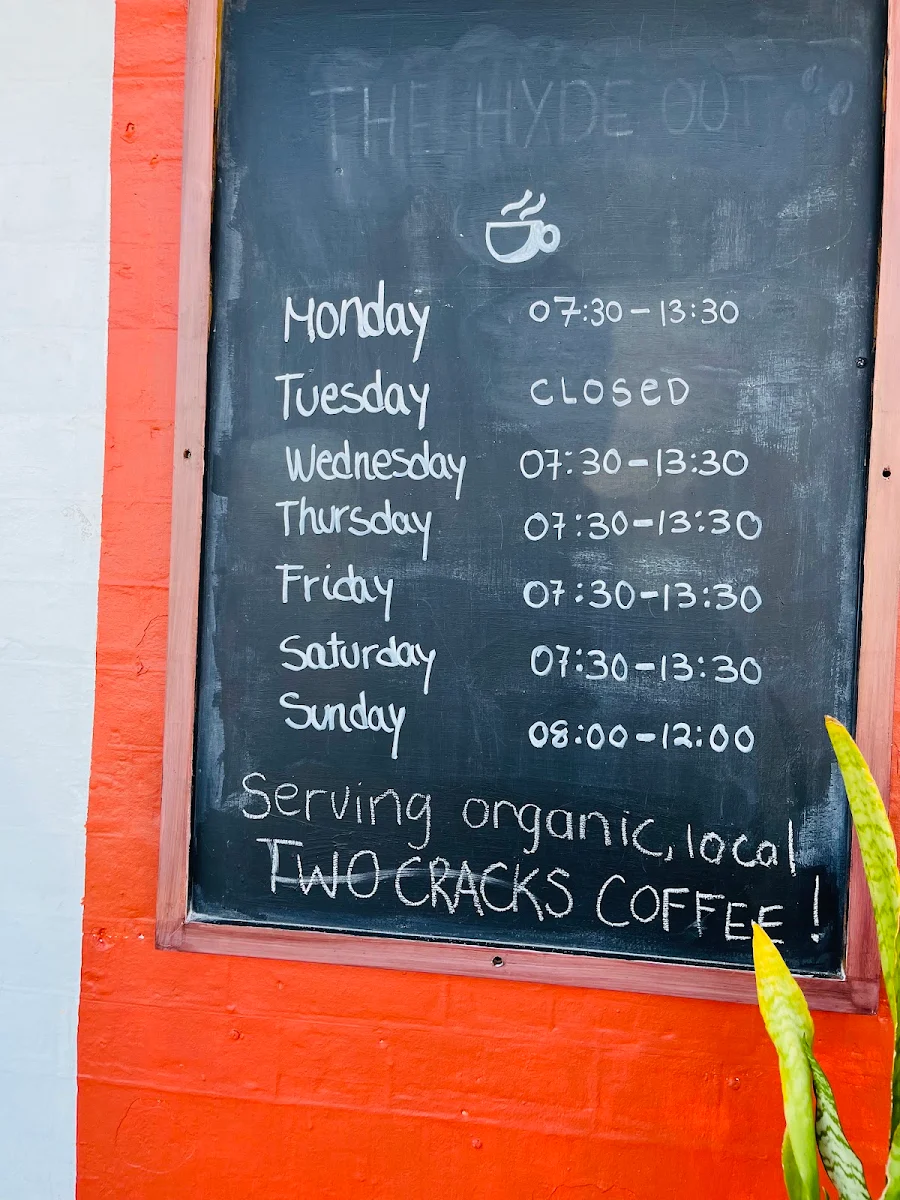 THE HYDE OUT
Monday 07:30-13:30
Tuesday CLOSED
Wednesday 07:30-13:30
Thursday 07:30-13:30
Friday 07:30-13:30
Saturday 07:30-13:30
Sunday 08:00-12:00
Serving organic, local
TWO CRACKS COFFEE!